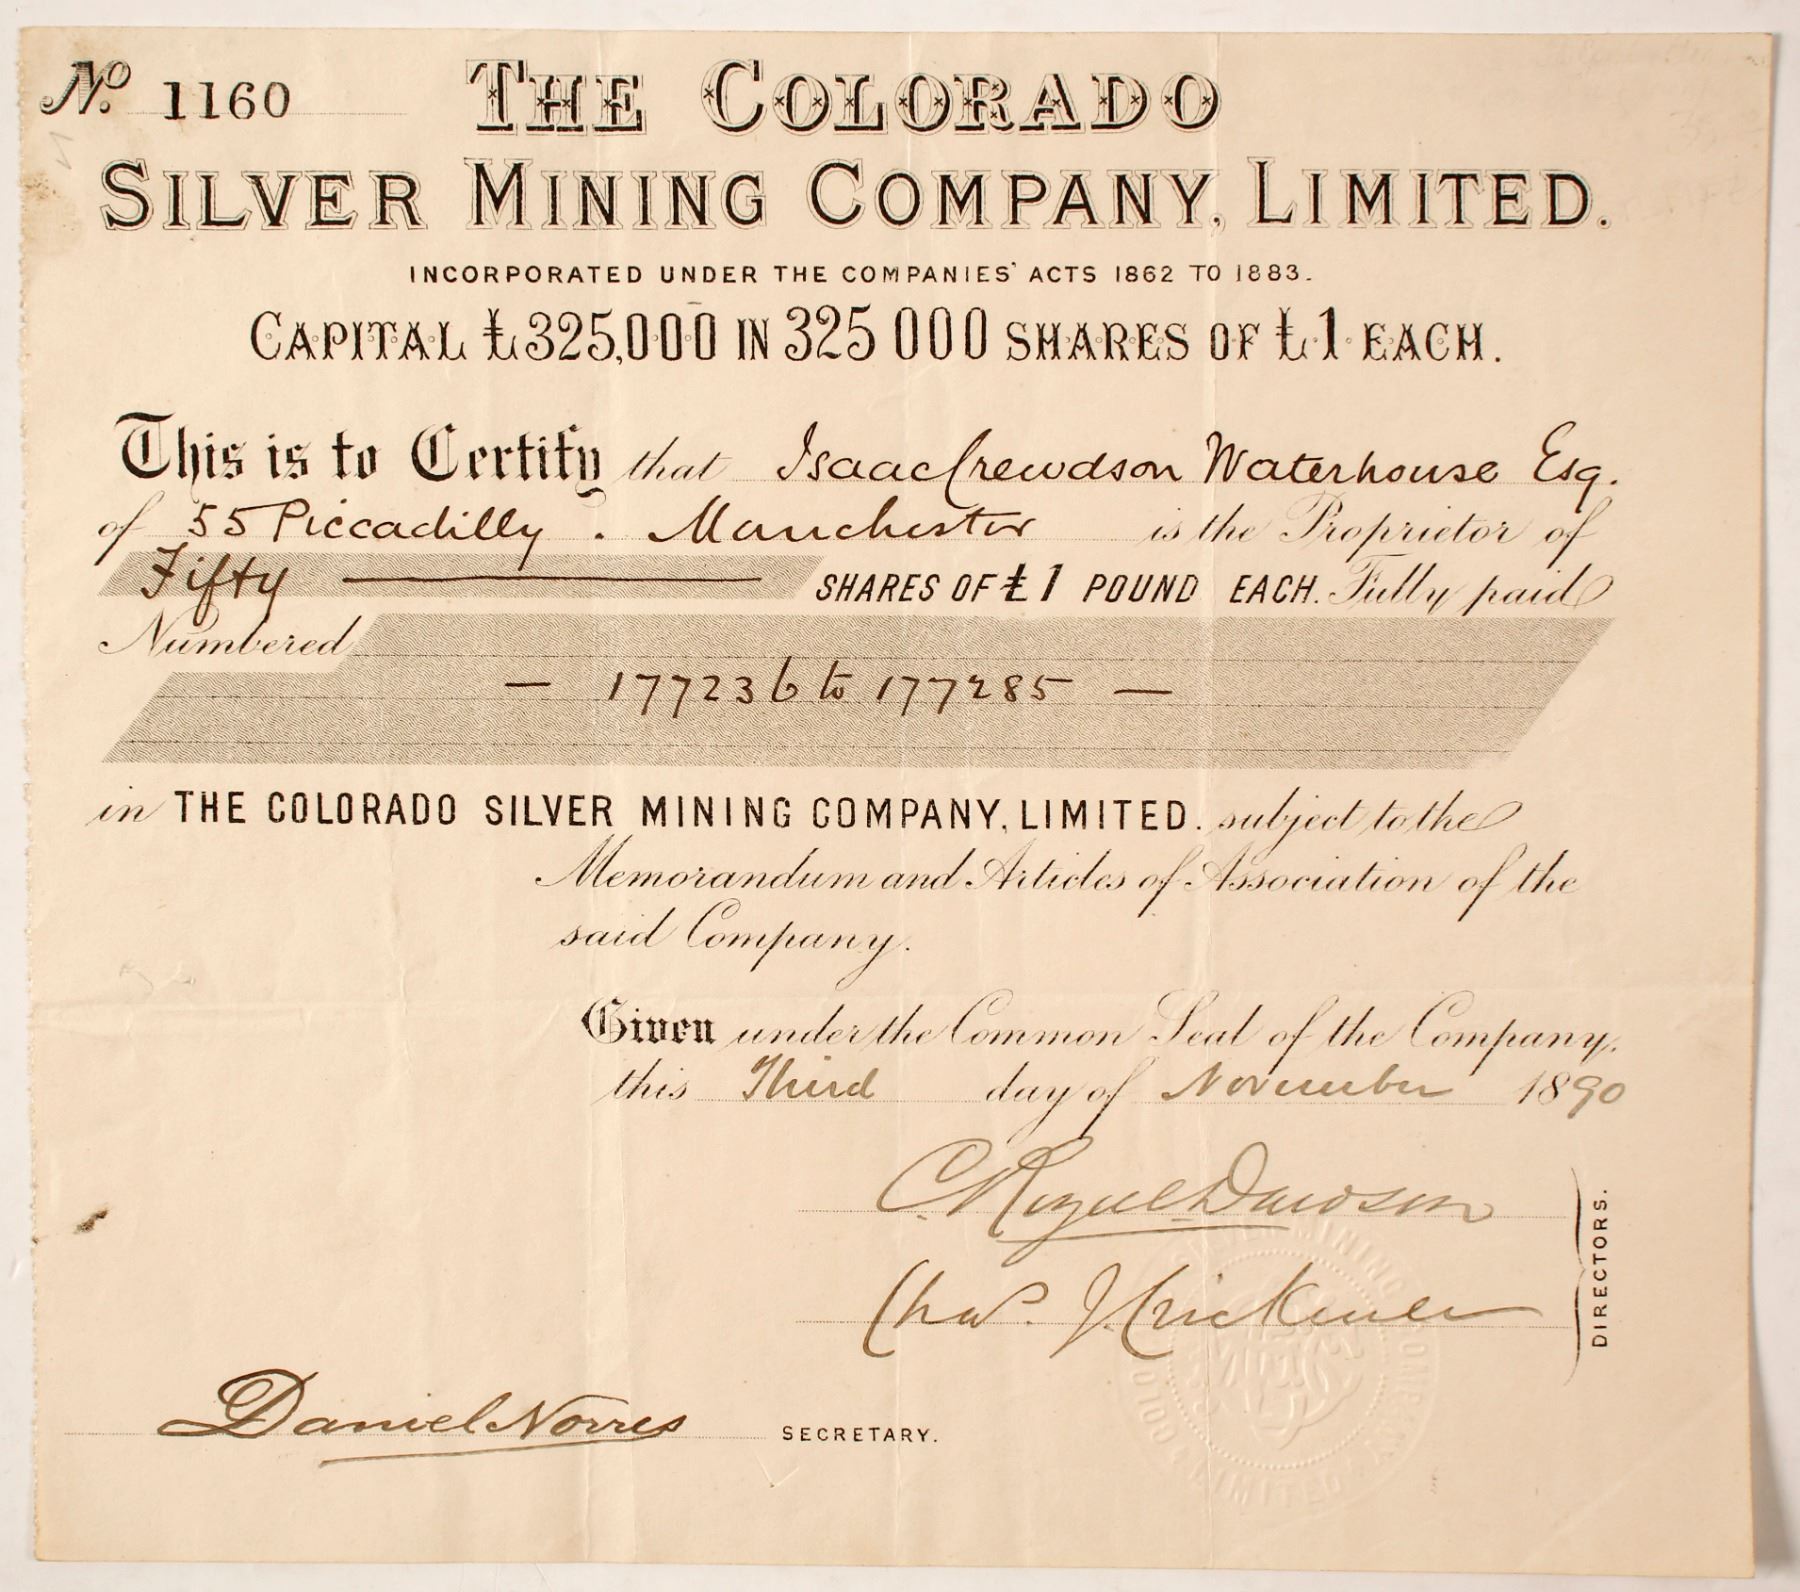 No. 1160
THE COLORADO
SILVER MINING COMPANY, LIMITED.
INCORPORATED UNDER THE COMPANIES' ACTS 1862 TO 1883.
CAPITAL £325,000 IN 325 000 SHARES OF £1 EACH.
This is to Certify that Isaac Crewdson Waterhouse Esq.
of 55 Piccadilly. Manchester is the Proprietor of
Fifty SHARES OF £1 POUND EACH. Fully paid
Numbered
— 177236 to 177285 —
in THE COLORADO SILVER MINING COMPANY, LIMITED. subject to the
Memorandum and Articles of Association of the
said Company.
Given under the Common Seal of the Company,
this Third day of November 1890
C. Dawson
Chas. J.
DIRECTORS.
Daniel Norris SECRETARY.
MINING COMPANY LIMITED